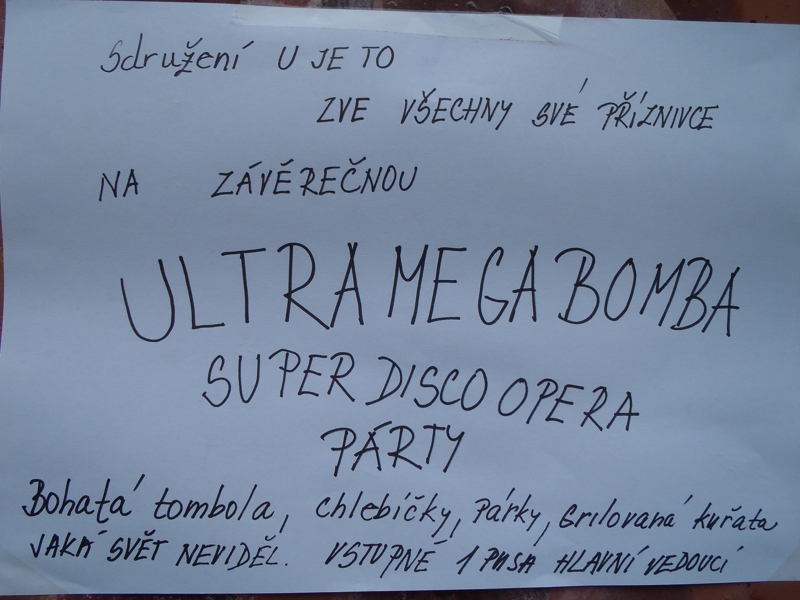 Sdružení U JE TO
ZVE VŠECHNY SVÉ PŘÍZNIVCE
NA ZÁVĚREČNOU
ULTRA MEGA BOMBA
SUPER DISCO OPERA
PÁRTY
Bohatá tombola, chlebíčky, Párky, Grilovaná kuřata
JAKÁ SVĚT NEVIDĚL. VSTUPNÉ 1 PUSA HLAVNÍ VEDOUCÍ